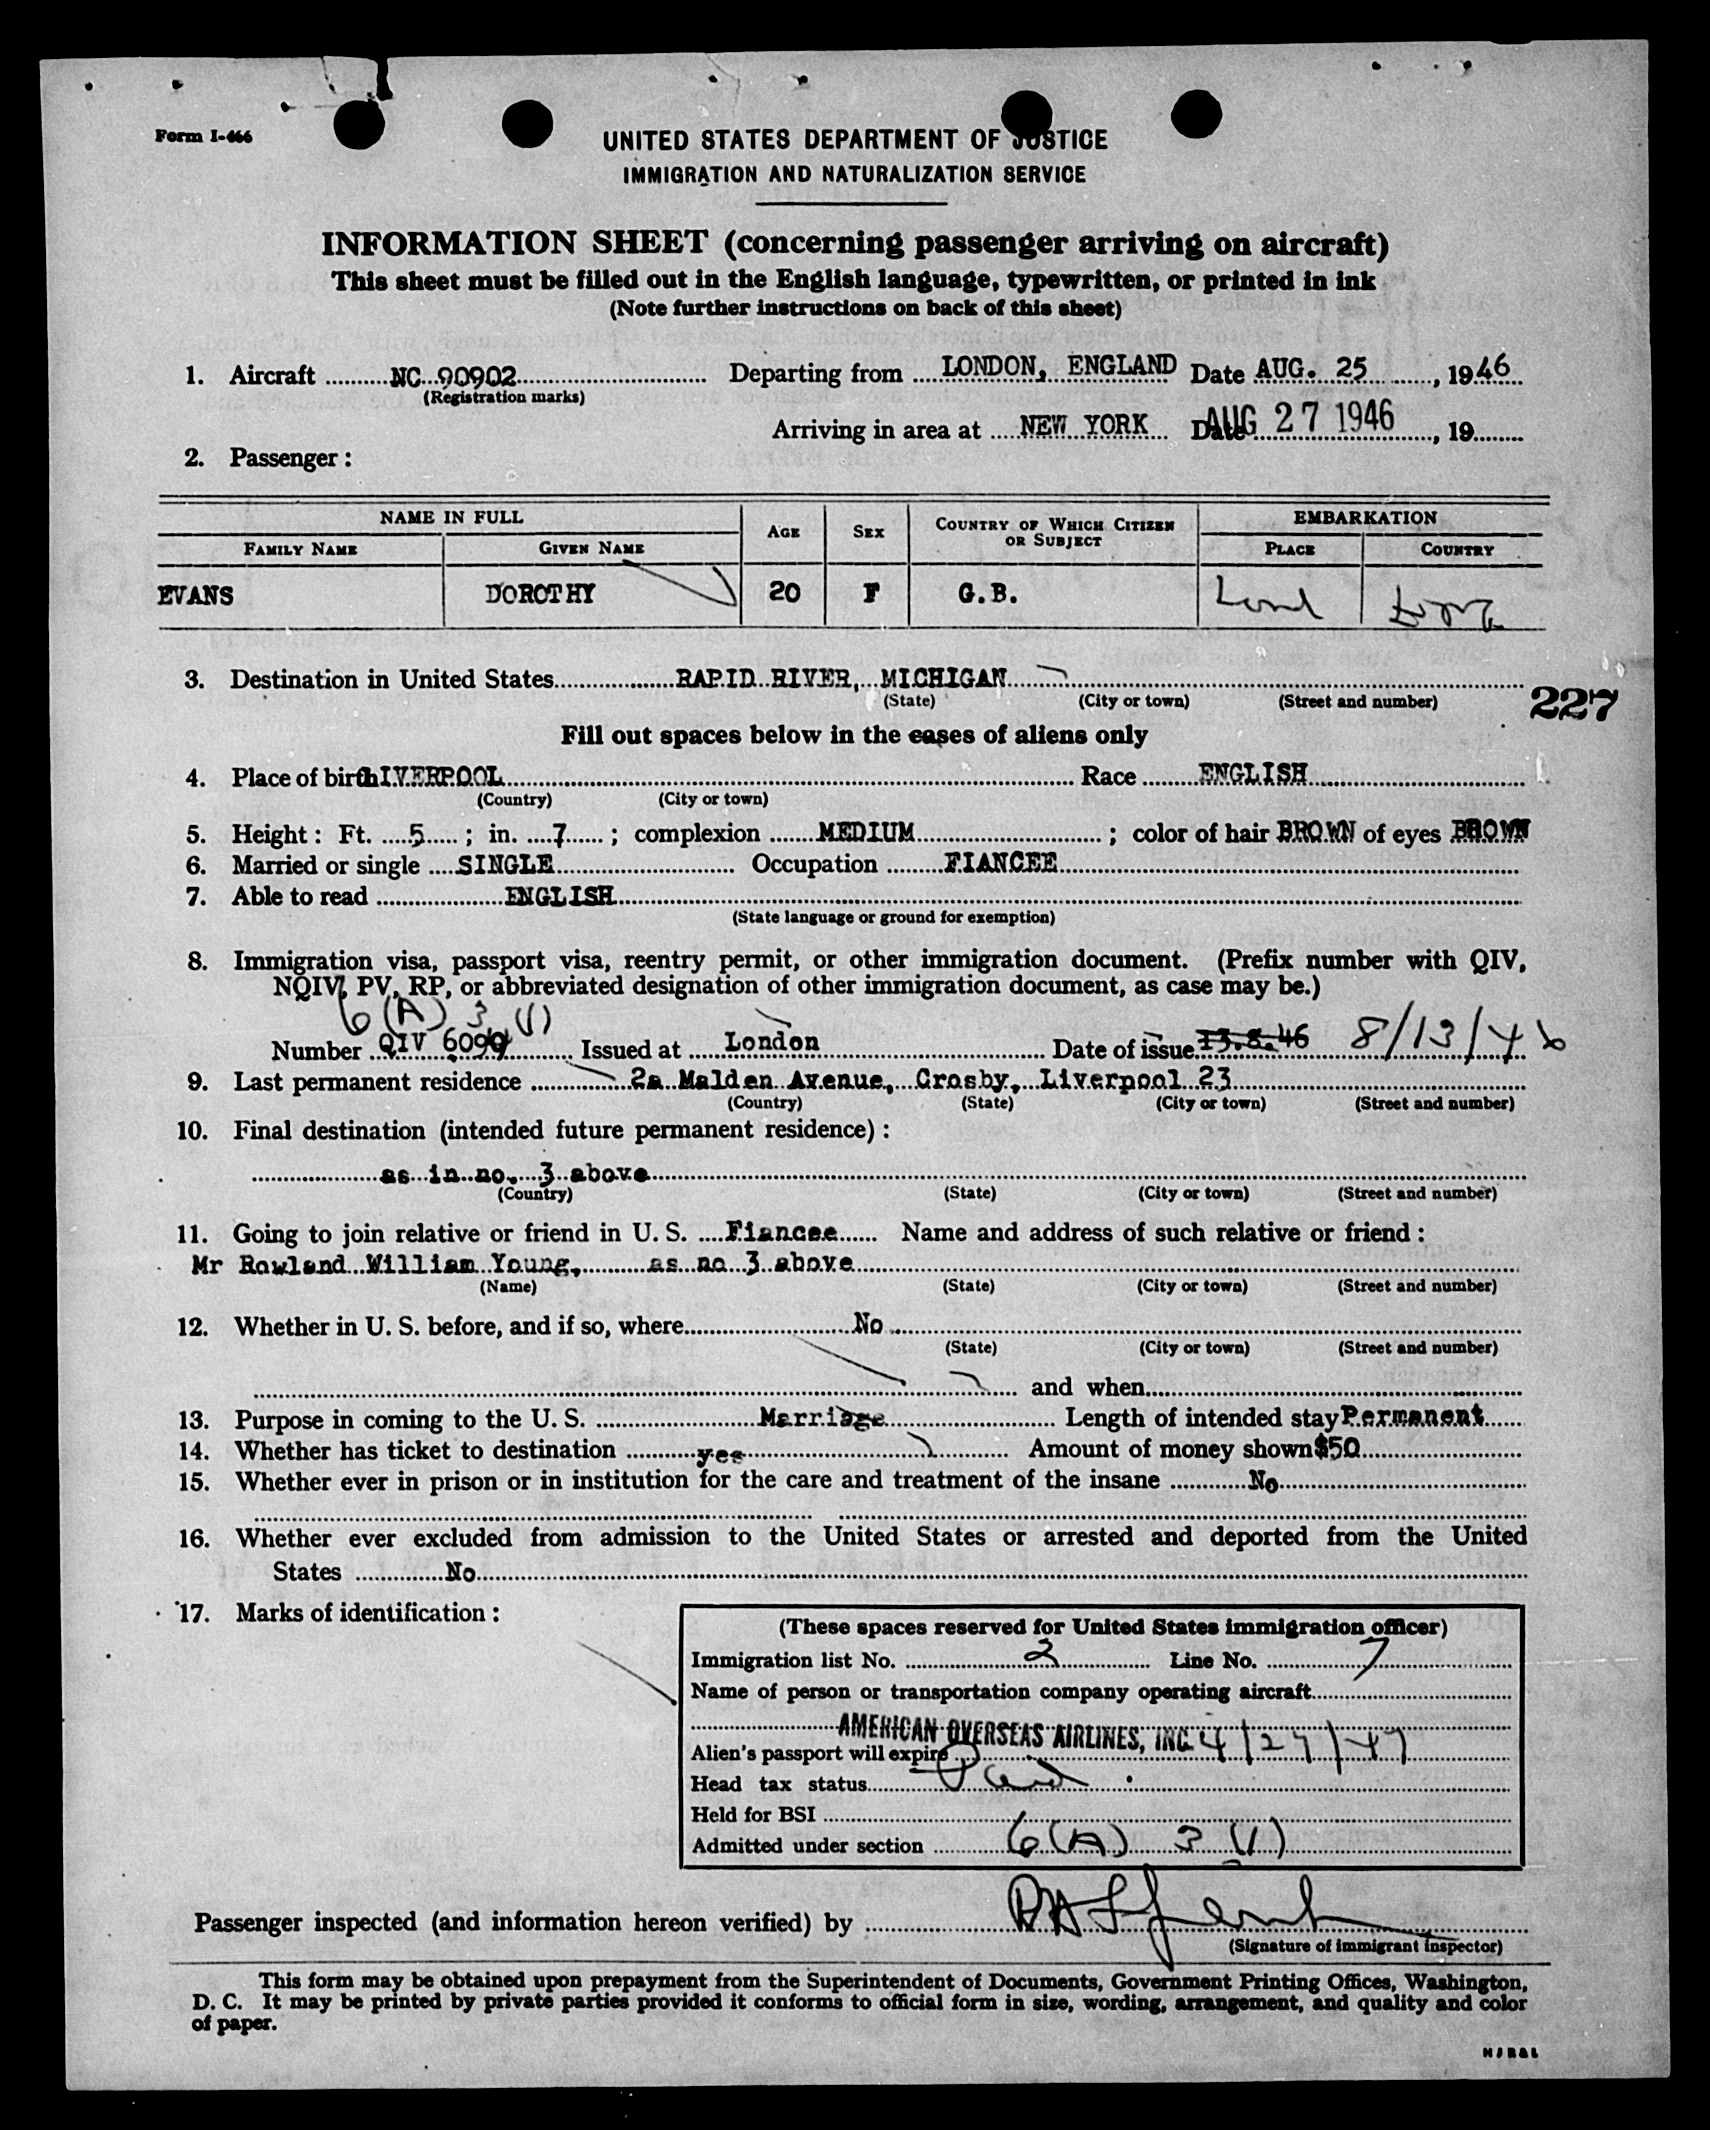 Form I-466
UNITED STATES DEPARTMENT OF JUSTICE
IMMIGRATION AND NATURALIZATION SERVICE
INFORMATION SHEET (concerning passenger arriving on aircraft)
This sheet must be filled out in the English language, typewritten, or printed in ink
(Note further instructions on back of this sheet)
1. Aircraft NC 90902 Departing from LONDON, ENGLAND Date AUG. 25, 1946
(Registration marks)
Arriving in area at NEW YORK Date AUG 27 1946, 19
2. Passenger:
NAME IN FULL AGE SEX COUNTRY OF WHICH CITIZEN OR SUBJECT EMBARKATION
FAMILY NAME GIVEN NAME PLACE COUNTRY
EVANS DOROTHY 20 F G.B. Lond
3. Destination in United States RAPID RIVER, MICHIGAN
(State) (City or town) (Street and number)
227
Fill out spaces below in the cases of aliens only
4. Place of birth LIVERPOOL Race ENGLISH
(Country) (City or town)
5. Height: Ft. 5; in. 7; complexion MEDIUM; color of hair BROWN of eyes BROWN
6. Married or single SINGLE Occupation FIANCEE
7. Able to read ENGLISH
(State language or ground for exemption)
8. Immigration visa, passport visa, reentry permit, or other immigration document. (Prefix number with QIV,
NQIV, PV, RP, or abbreviated designation of other immigration document, as case may be.)
6(A) 3 (1)
Number QIV 6099 Issued at London Date of issue 13.8.46 8/13/46
9. Last permanent residence 2a Malden Avenue, Crosby, Liverpool 23
(Country) (State) (City or town) (Street and number)
10. Final destination (intended future permanent residence):
as in no. 3 above
(Country) (State) (City or town) (Street and number)
11. Going to join relative or friend in U. S. Fiancee Name and address of such relative or friend:
Mr Rowland William Young, as no 3 above
(Name) (State) (City or town) (Street and number)
12. Whether in U. S. before, and if so, where No
(State) (City or town) (Street and number)
and when
13. Purpose in coming to the U. S. Marriage Length of intended stay Permanent
14. Whether has ticket to destination yes Amount of money shown $50
15. Whether ever in prison or in institution for the care and treatment of the insane No
16. Whether ever excluded from admission to the United States or arrested and deported from the United
States No
17. Marks of identification:
(These spaces reserved for United States immigration officer)
Immigration list No. 2 Line No. 7
Name of person or transportation company operating aircraft
AMERICAN OVERSEAS AIRLINES, INC.
Alien's passport will expire 4/27/47
Head tax status Paid
Held for BSI
Admitted under section 6(A) 3 (1)
Passenger inspected (and information hereon verified) by
(Signature of immigrant inspector)
This form may be obtained upon prepayment from the Superintendent of Documents, Government Printing Offices, Washington,
D. C. It may be printed by private parties provided it conforms to official form in size, wording, arrangement, and quality and color
of paper.